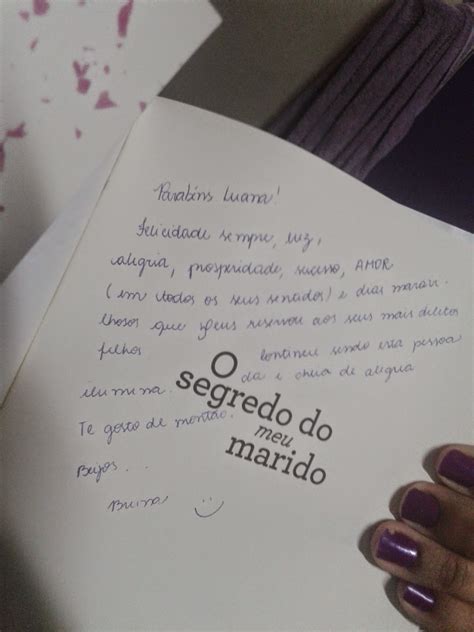 Parabéns Luana!
Felicidade sempre, luz,
alegria, prosperidade, sucesso, AMOR
(em todos os seus sentidos) e dias maravi-
lhosos que Deus reservou aos seus mais diletos
filhos continue sendo esta pessoa
ilumina da e cheia de alegria
Te gosto de montão.
Beijos...
O
segredo do
meu
marido